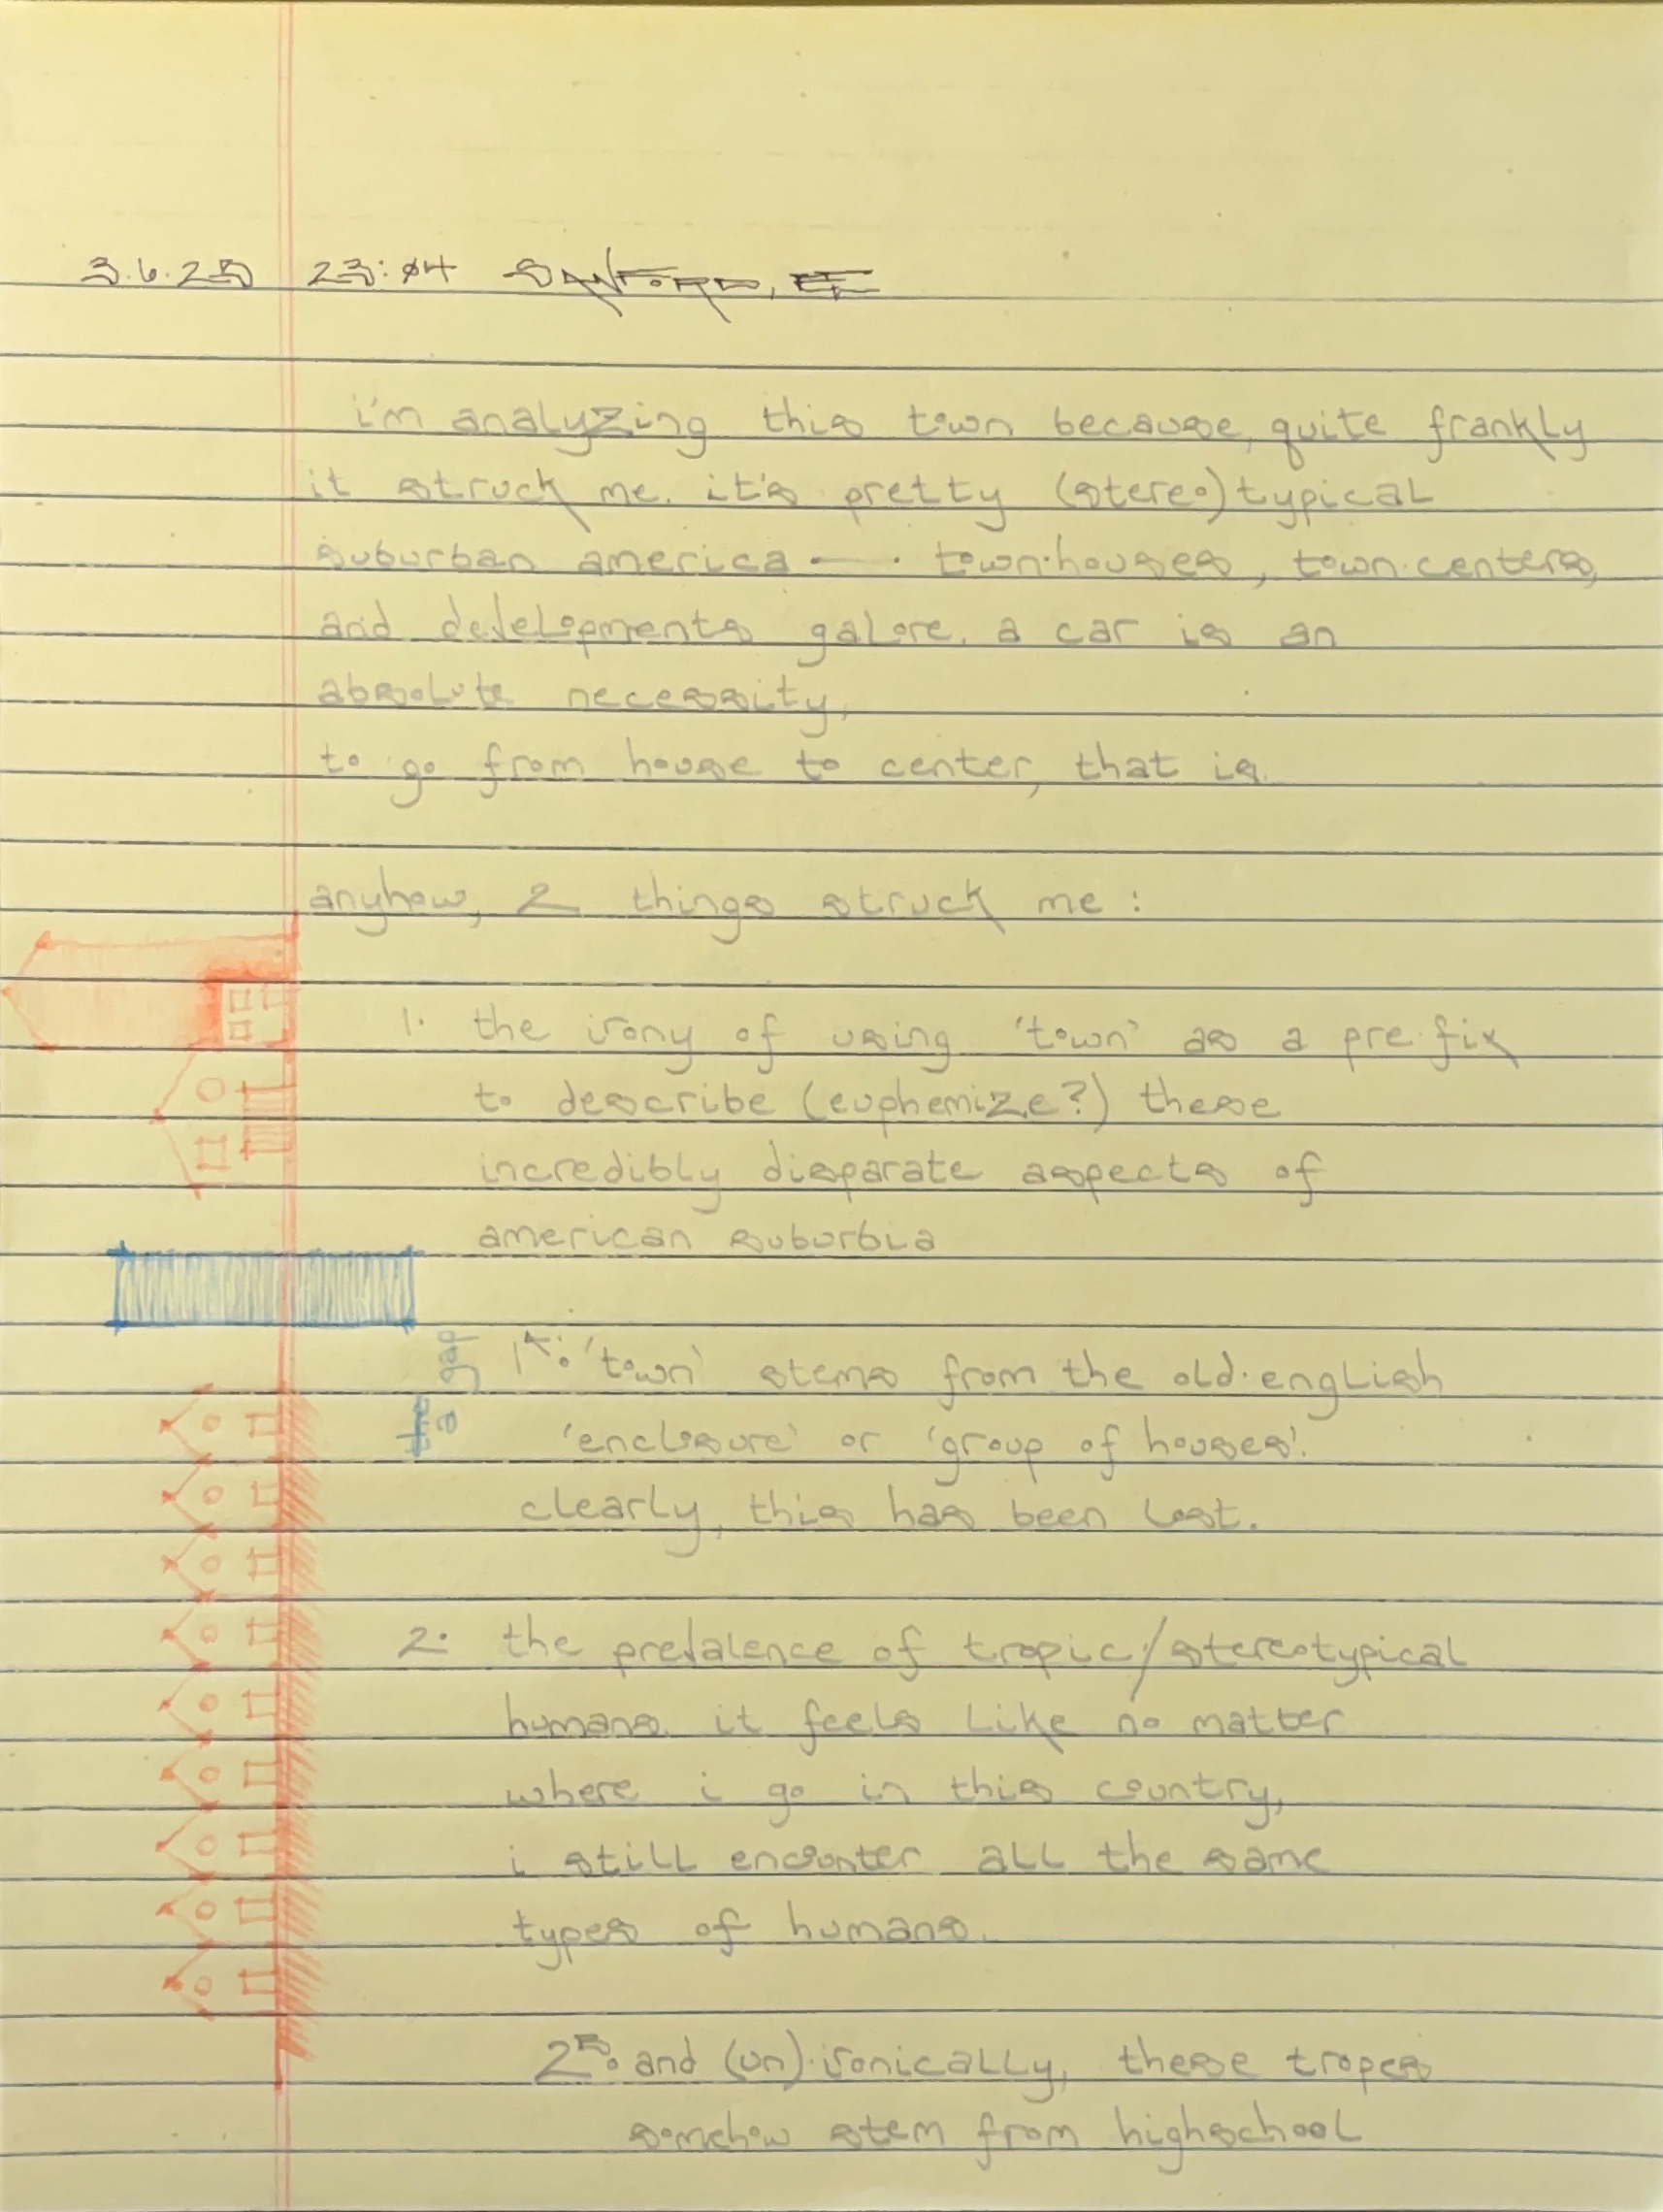 3.6.25 23:04 SANFORD, FL
i'm analyzing this town because, quite frankly
it struck me. it's pretty (stereo)typical
suburban america —· town·houses, town·centers,
and developments galore. a car is an
absolute necessity,
to go from house to center, that is.
anyhow, 2 things struck me:
1. the irony of using 'town' as a pre·fix
to describe (euphemize?) these
incredibly disparate aspects of
american suburbia
the
a gap
1A: 'town' stems from the old·english
'enclosure' or 'group of houses'.
clearly, this has been lost.
2. the prevalence of tropic/stereotypical
humans. it feels like no matter
where i go in this country,
i still encounter all the same
types of humans.
and (un)·ironically, these tropes
somehow stem from highschool